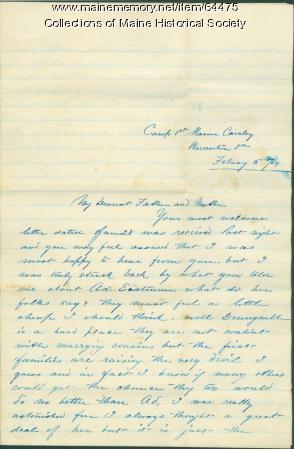 www.mainememory.net/item/64475
Collections of Maine Historical Society
Camp 1st Maine Cavalry
Warrenton Va
My Dearest Father and Mother
Your most welcome
letter dated was received last night
and you may feel assured that I was
most happy to hear from you. but I
was truly struck back by what you told
me about Ad. Eastman what do her
folks say? they must feel a little
cheap I should think. well
is a hard place they are not content
with marrying cousins but the first
families are raising the very devil. I
guess and in fact I know if many others
could get the chance they too would
do no better than Ad, I was really
astonished for I always thought a great
deal of her but it is just the